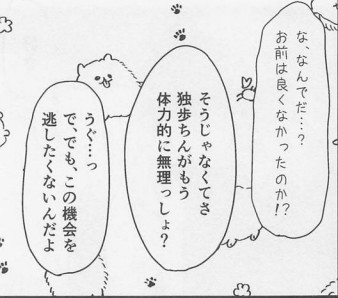 な、なんでだ…？
お前は良くなかったのか!?
そうじゃなくてさ
独歩ちんがもう
体力的に無理っしょ？
うぐ…っ
で、でも、この機会を
逃したくないんだよ